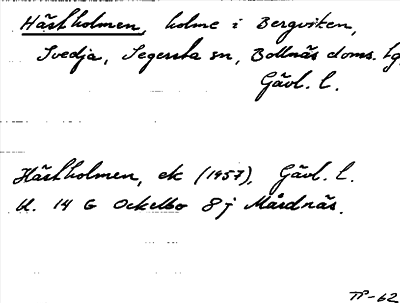 Hästholmen, holme i Bergviken,
Svedja, Segersta sn, Bollnäs doms. tg,
Gävl. l.
Hästholmen, ek (1957), Gävl. l.
U. 14 G Ockelbo 8 j Mårdnäs.
TP-62